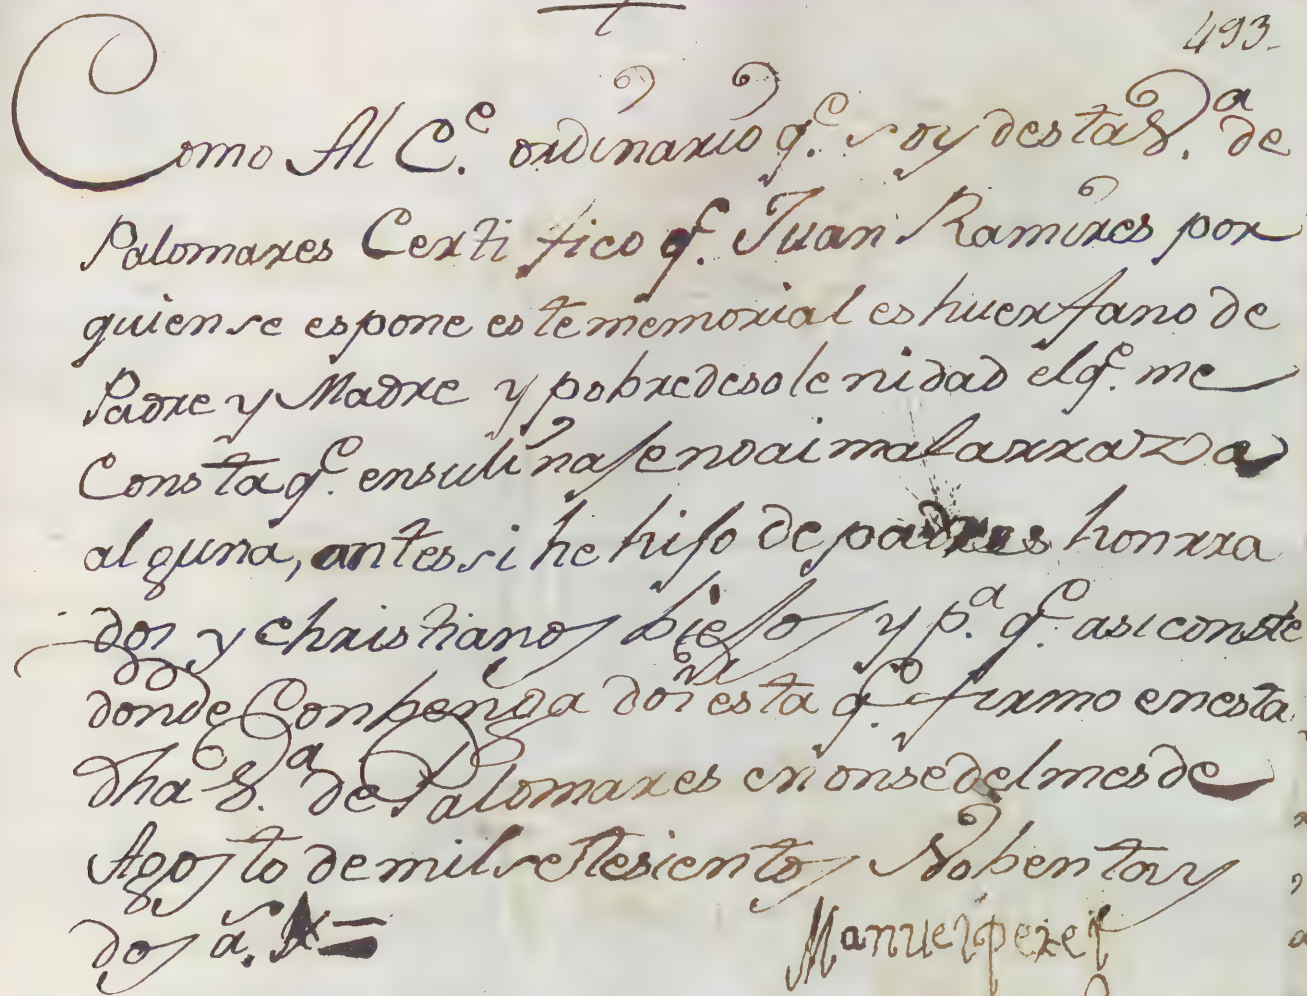 493.
Como Al C.e ordinario q.e soy desta V.a de
Palomares Certifico q.e Juan Ramires por
quien se espone este memorial es huerfano de
Padre y Madre y pobre de solenidad el q.e me
Consta q.e en su linase no ai mala rraza
alguna, antes si he hijo de padres honrra
dos y christianos biejos y p.a q.e asi conste
donde Conbenga doi esta q.e firmo en esta
dha V.a de Palomares en onse del mes de
Agosto de mil setesientos Nobenta y
dos a.s =
Manuel perez